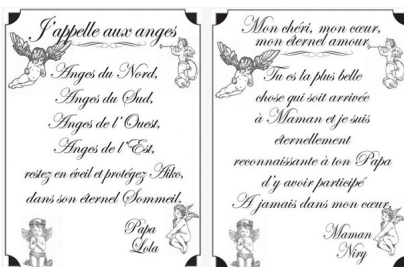 J'appelle aux anges
Anges du Nord,
Anges du Sud,
Anges de l'Ouest,
Anges de l'Est,
restez en éveil et protégez Aiko,
dans son éternel Sommeil.
Papa
Lola
Mon chéri, mon cœur,
mon éternel amour
Tu es la plus belle
chose qui soit arrivée
à Maman et je suis
éternellement
reconnaissante à ton Papa
d'y avoir participé
A jamais dans mon cœur,
Maman
Niry